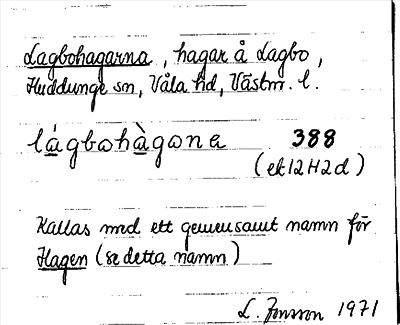 Lagbohagarna, hagar å Lagbo,
Huddunge sn, Våla hd, Västm. l.
lágbohàgɷna 388
(ek 12 H 2 d)
Kallas med ett gemensamt namn för
Hagen (se detta namn)
L. Jonsson 1971